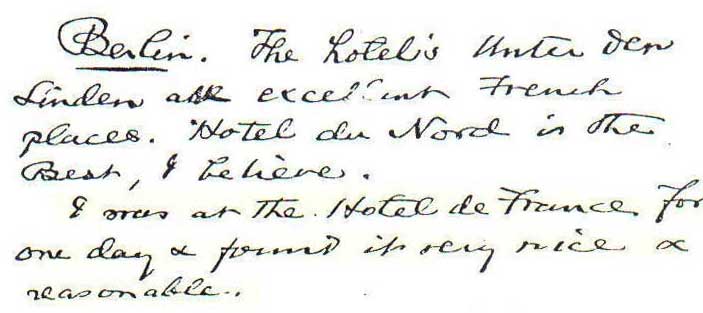 Berlin. The hotel's Unter den
Linden are excellent French
places. Hotel du Nord is the
Best, I believe.
I was at the Hotel de France for
one day & found it very nice &
reasonable.